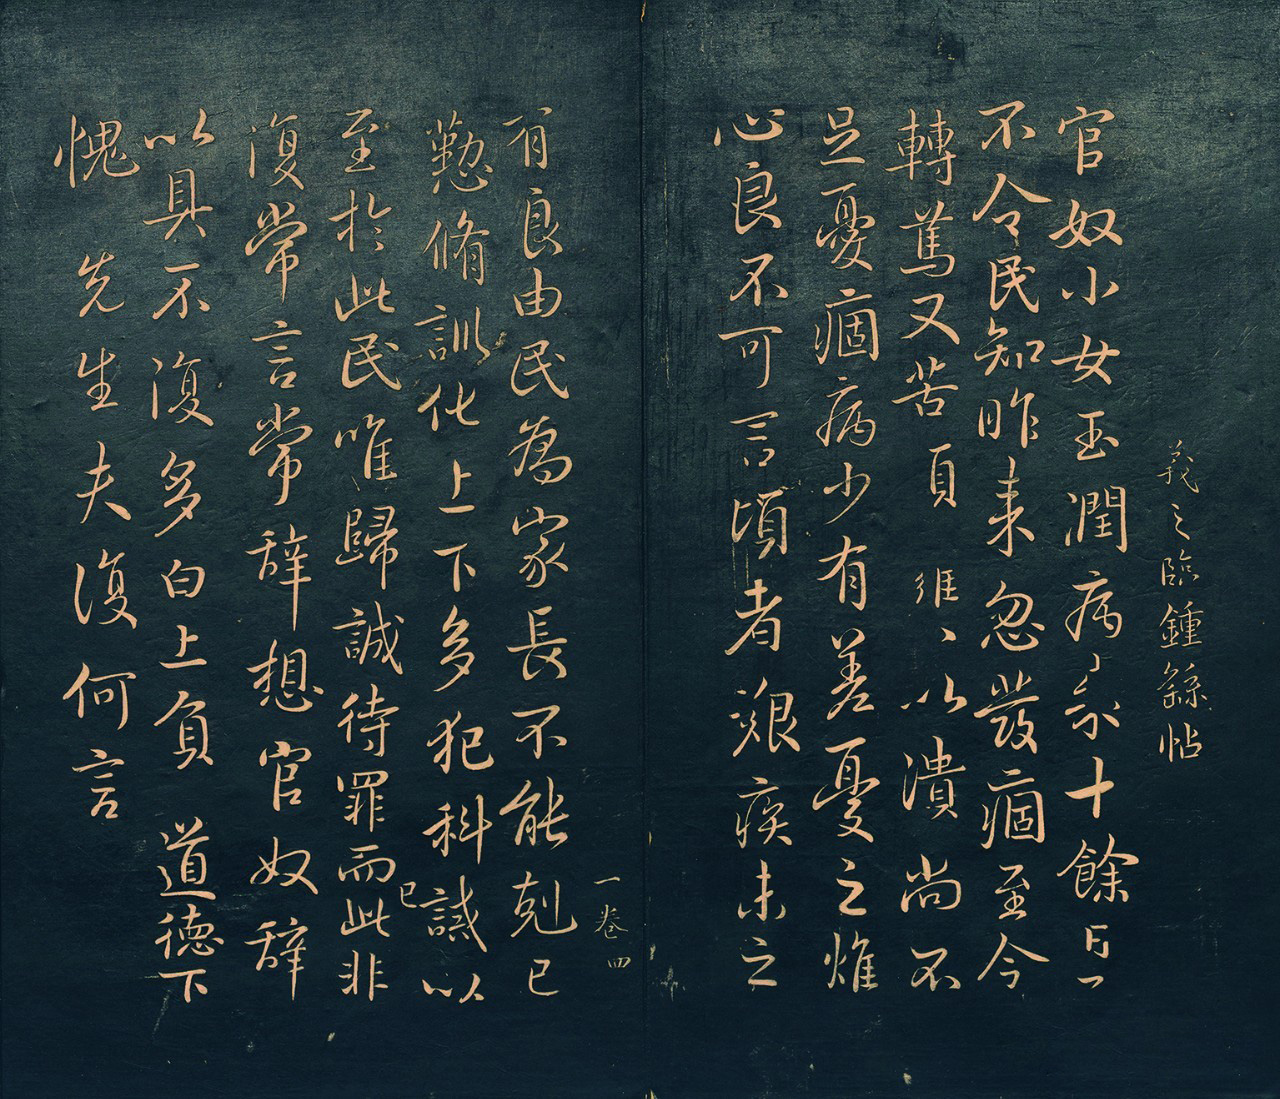 羲之臨鍾繇帖
官奴小女玉潤病來十餘日
不令民知昨來忽發痼至今
轉篤又苦頁以潰尚不
足憂痼病少有差憂之燋
心良不可言頃者艱疾未之
一卷四
有良由民為家長不能剋己
懃脩訓化上下多犯科誡以
已
至於此民唯歸誠待罪而此非
復常言常辭想官奴辭
以具不復多白上負 道德下
愧 先生夫復何言